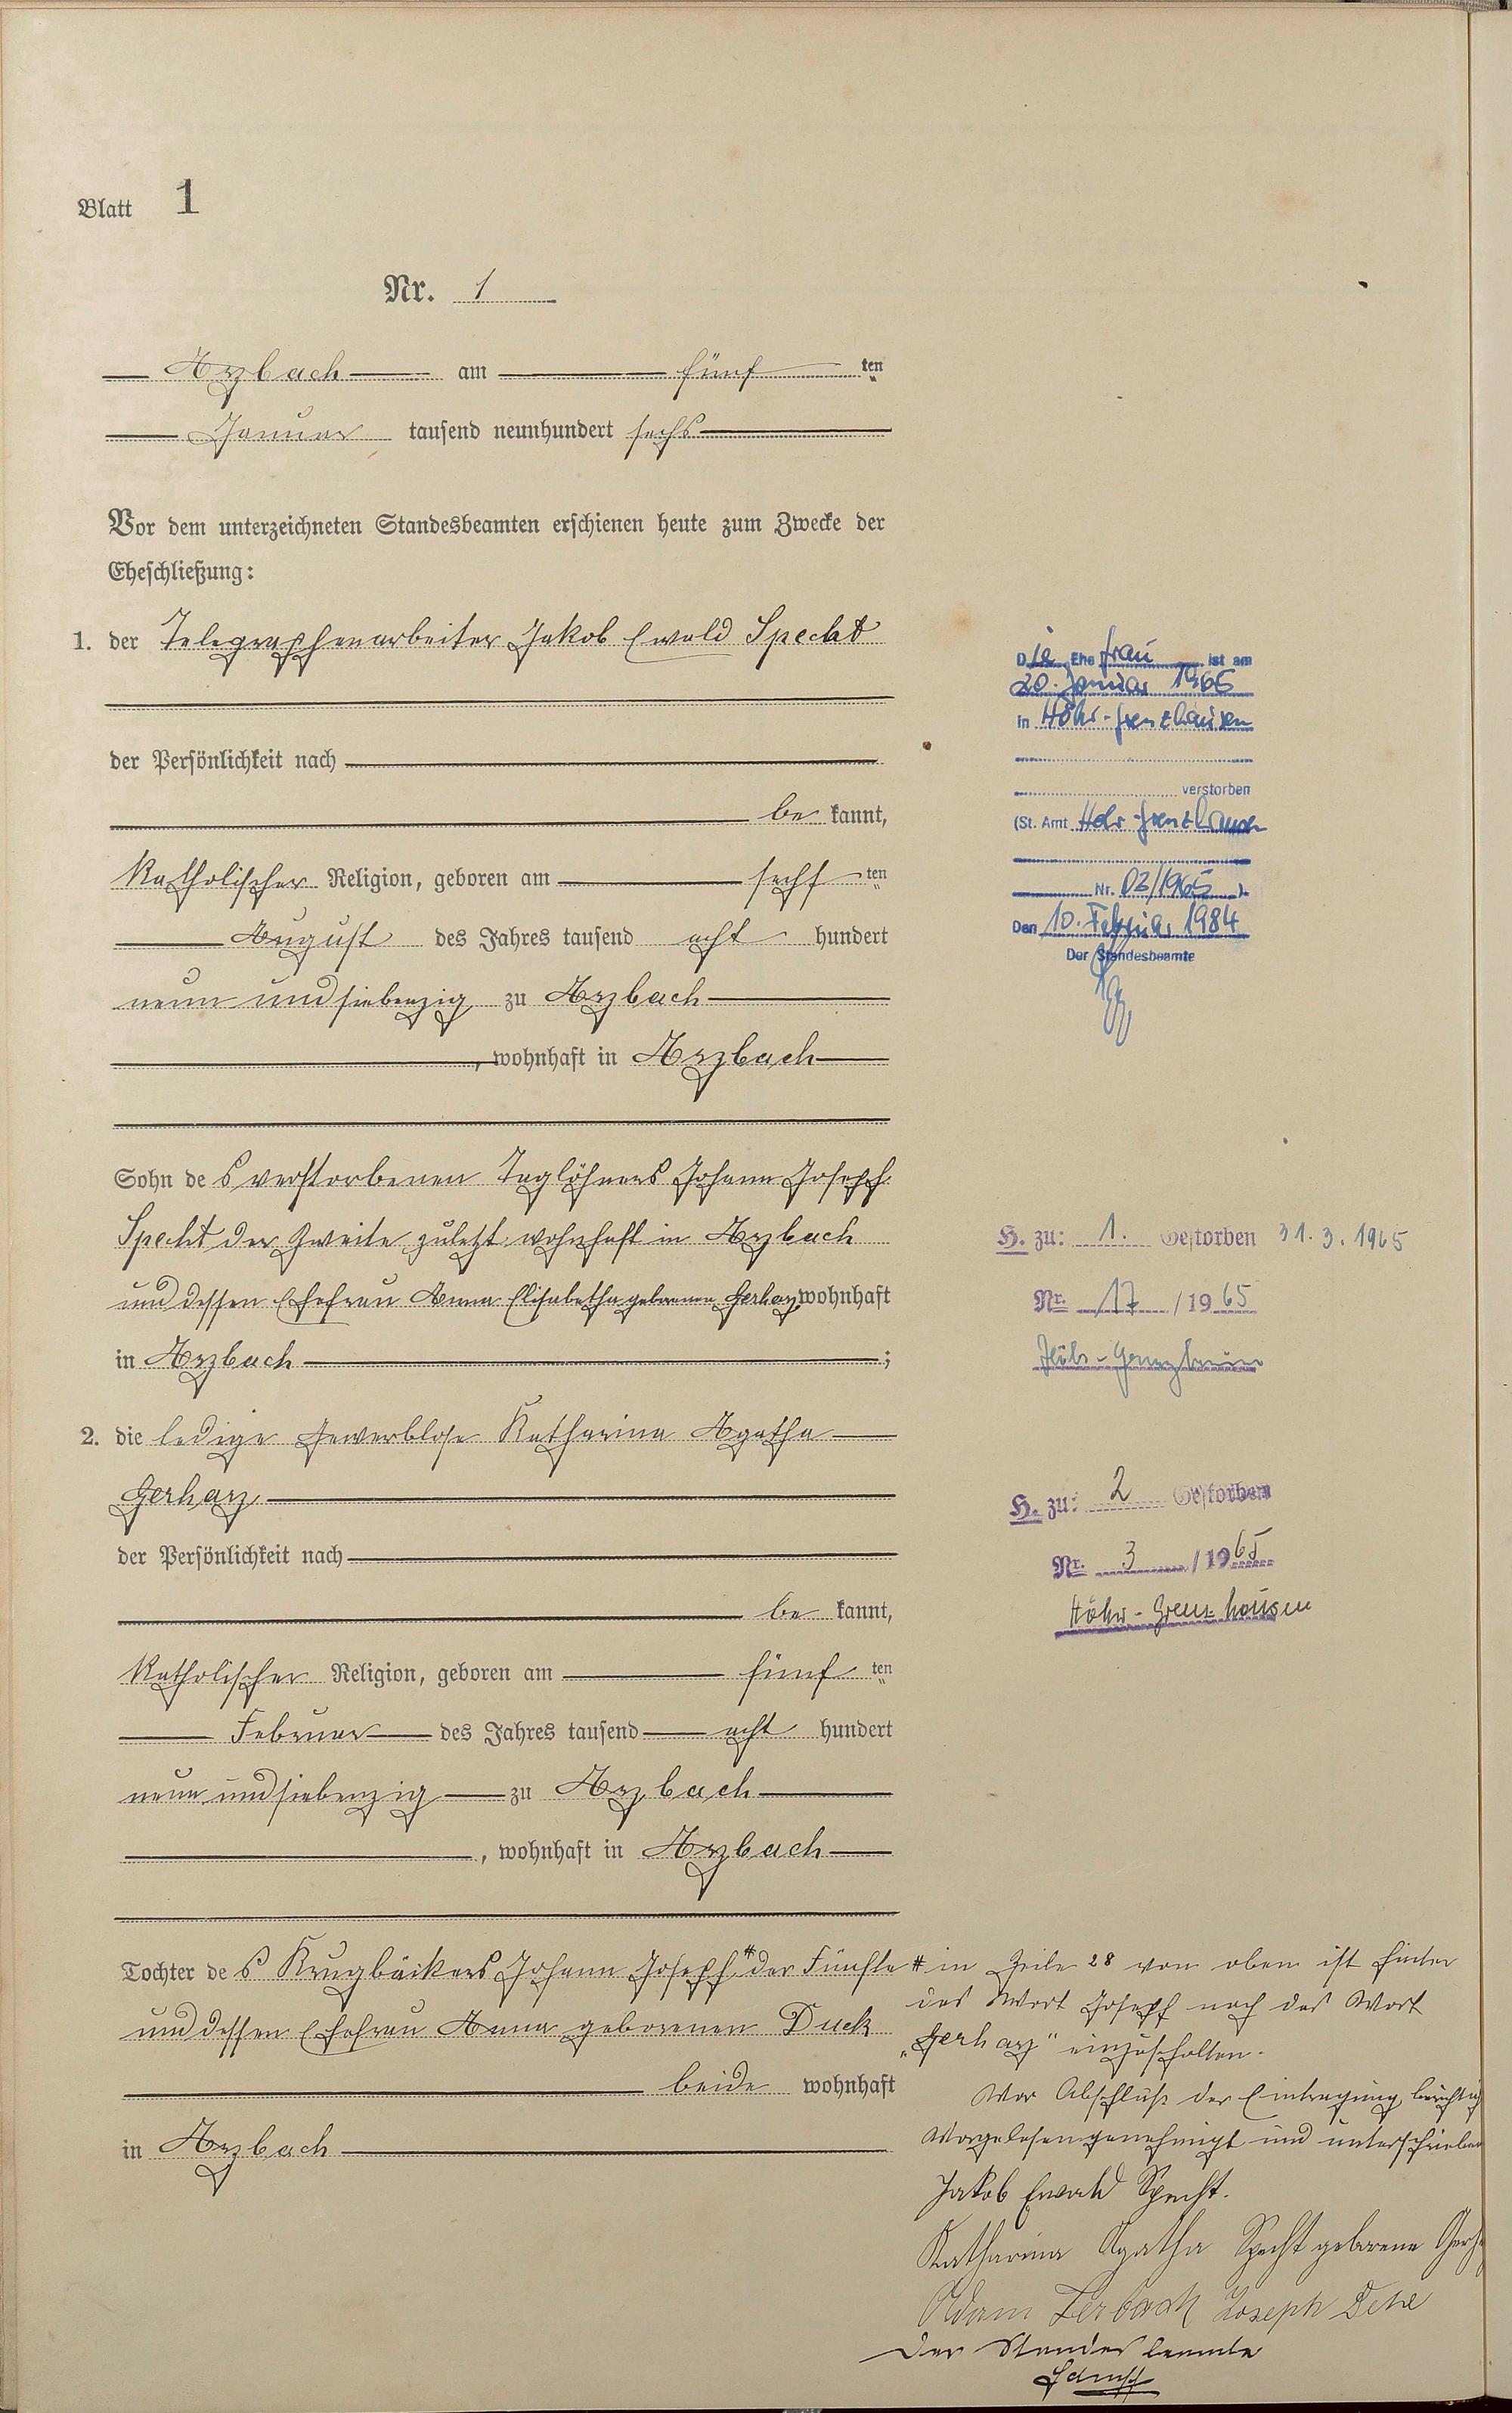 Blatt 1
Nr. 1
Arzbach am fünf ten
Januar tausend neunhundert sechs
Vor dem unterzeichneten Standesbeamten erschienen heute zum Zwecke der
Eheschließung:
1. der Telegraphenarbeiter Jakob Ewald Specht
der Persönlichkeit nach
be kannt,
katholischer Religion, geboren am sechs ten
August des Jahres tausend acht hundert
neun und siebenzig zu Arzbach
, wohnhaft in Arzbach
Sohn de s verstorbenen Taglöhners Johann Joseph
Specht der Zweite zuletzt wohnhaft in Arzbach
und dessen Ehefrau Anna Elisabetha geborenen Gerharz wohnhaft
in Arzbach ;
2. die ledige gewerblose Katharina Agatha
Gerharz
der Persönlichkeit nach
be kannt,
katholischer Religion, geboren am fünf ten
Februar des Jahres tausend acht hundert
neun und siebenzig zu Arzbach
, wohnhaft in Arzbach
Tochter de s Krugbäckers Johann Joseph # der Fünfte
und dessen Ehefrau Anna geborenen Duck
beide wohnhaft
in Arzbach
Die Ehefrau ist am
20. Januar 1965
in Höhr-Grenzhausen
verstorben
(St. Amt Höhr-Grenzhausen
Nr. 03/1965 ).
Den 10. Februar 1984
Der Standesbeamte
H. zu: 1. Gestorben 31.3.1965
Nr. 17 / 19 65
Höhr-Grenzhausen
H. zu: 2 Gestorben
Nr. 3 / 19 65
Höhr-Grenzhausen
# in Zeile 28 von oben ist hinter
das Wort Joseph noch das Wort
„Gerharz" einzuschalten.
Vor Abschluß der Eintragung berichtigt
Vorgelesen genehmigt und unterschrieben
Jakob Ewald Specht.
Katharina Agatha Specht geborene
Adam Joseph
Der Standesbeamte